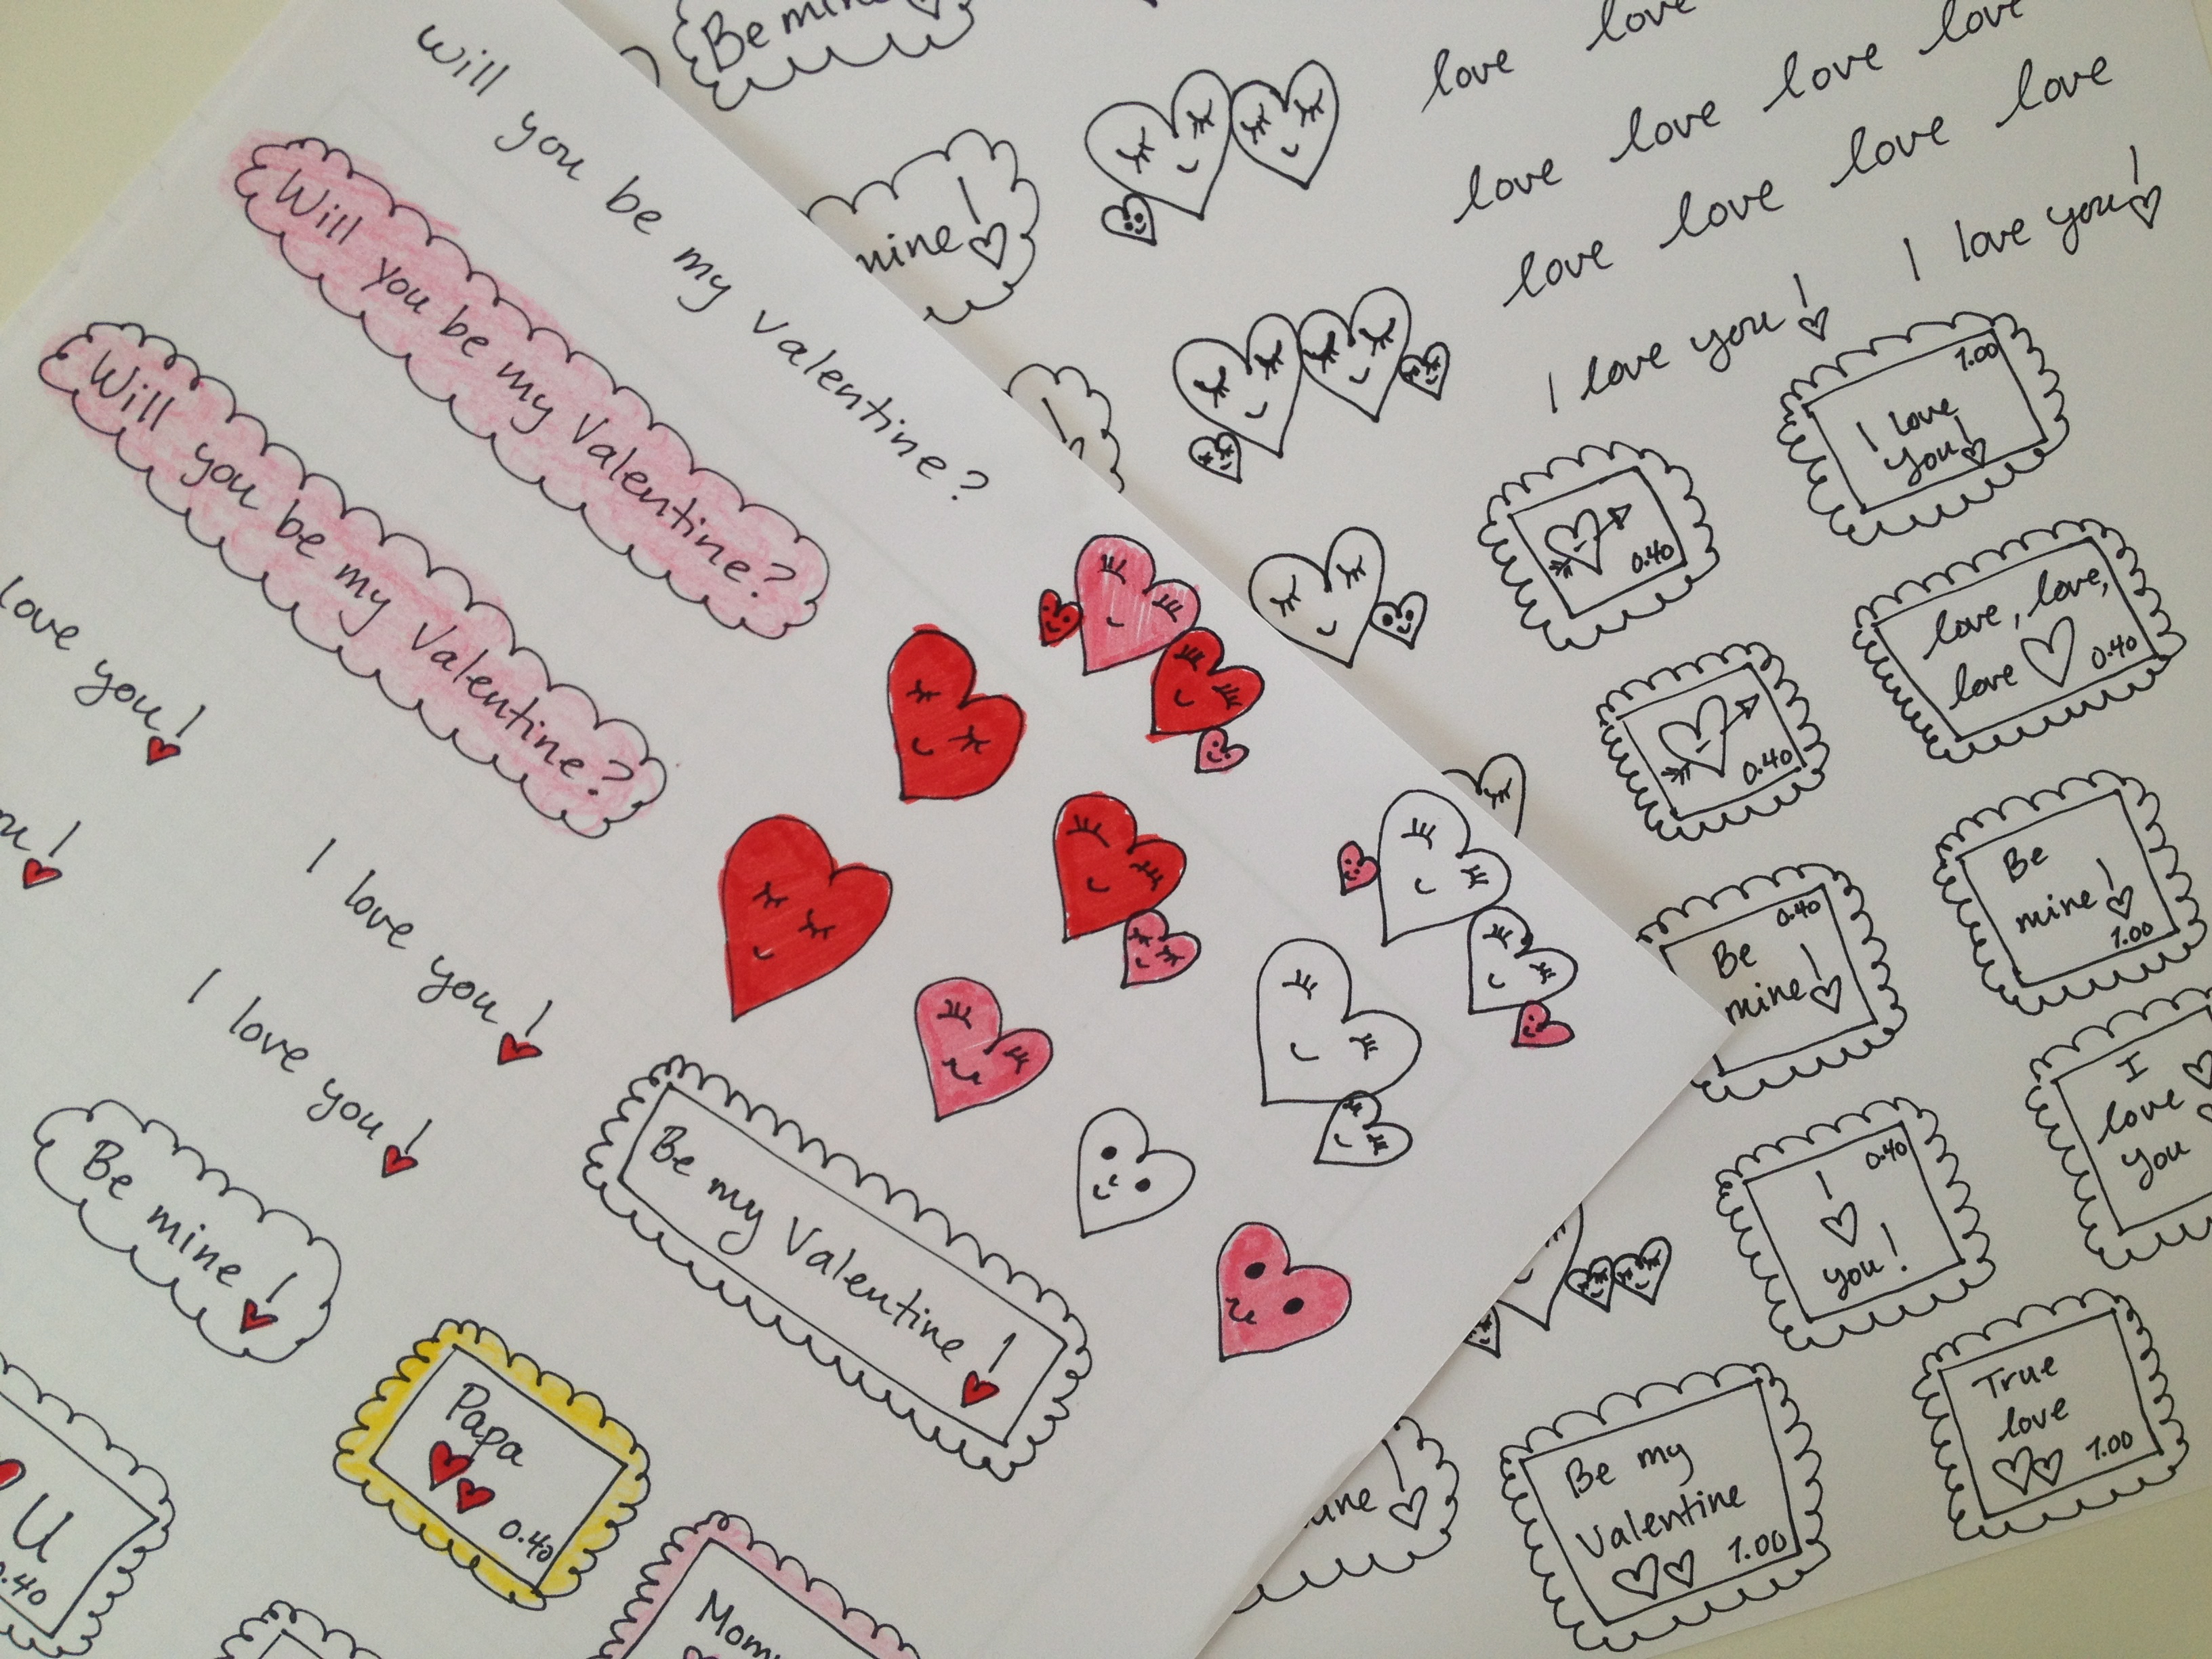 will you be my valentine?
Will you be my Valentine?
Will you be my Valentine?
love you!
I love you!
I love you!
Be mine!
Be my Valentine!
Papa
0.40
U
.40
Be
mine!
love love
love love love love
love love love love
I love you! I love you!
1.00
I love
you!
0.40
love, love,
love 0.40
0.40
Be
mine!
1.00
0.40
Be
mine!
I
love
you
0.40
I
you!
True
love
1.00
Be my
Valentine
1.00